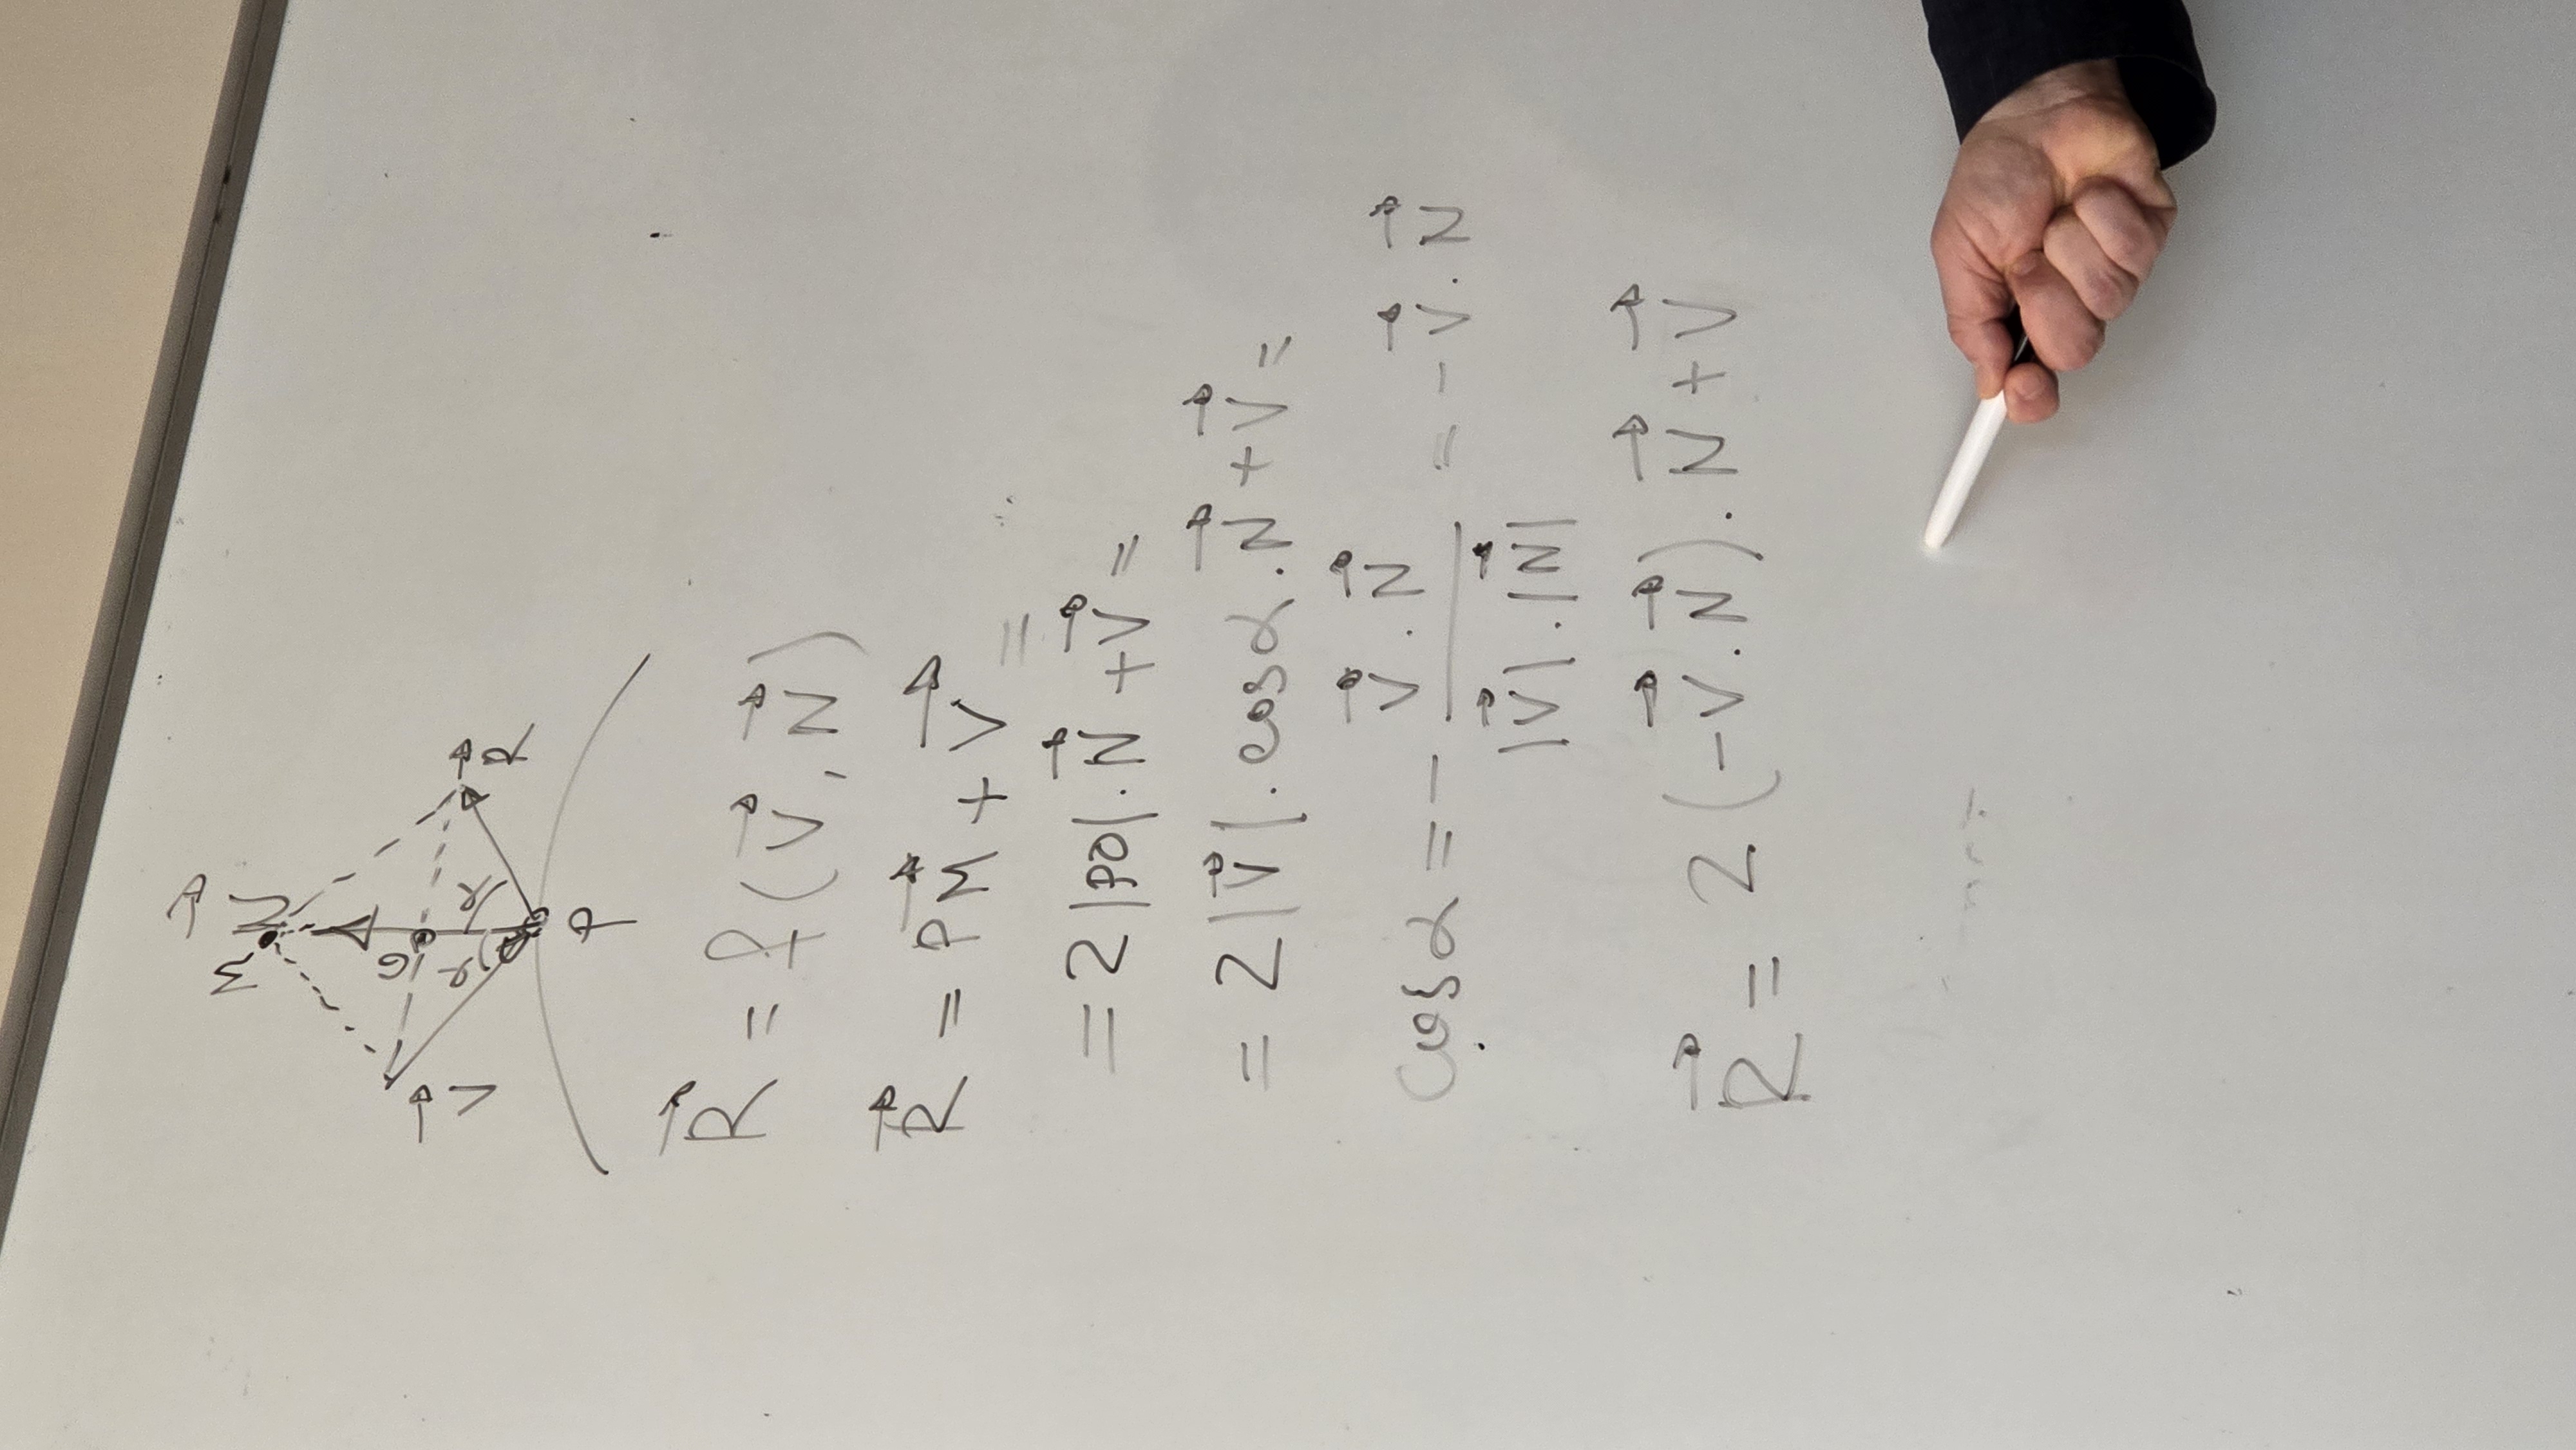 M N⃗
O
V⃗ α α R⃗
P
R⃗ = f(V⃗, N⃗)
R⃗ = PM⃗ + V⃗ =
= 2|PO|.N⃗ + V⃗ =
= 2|V⃗|.cosα.N⃗ + V⃗ =
cosα = - V⃗.N⃗ / |V⃗|.|N⃗| = -V⃗.N⃗
R⃗ = 2(-V⃗.N⃗).N⃗ + V⃗